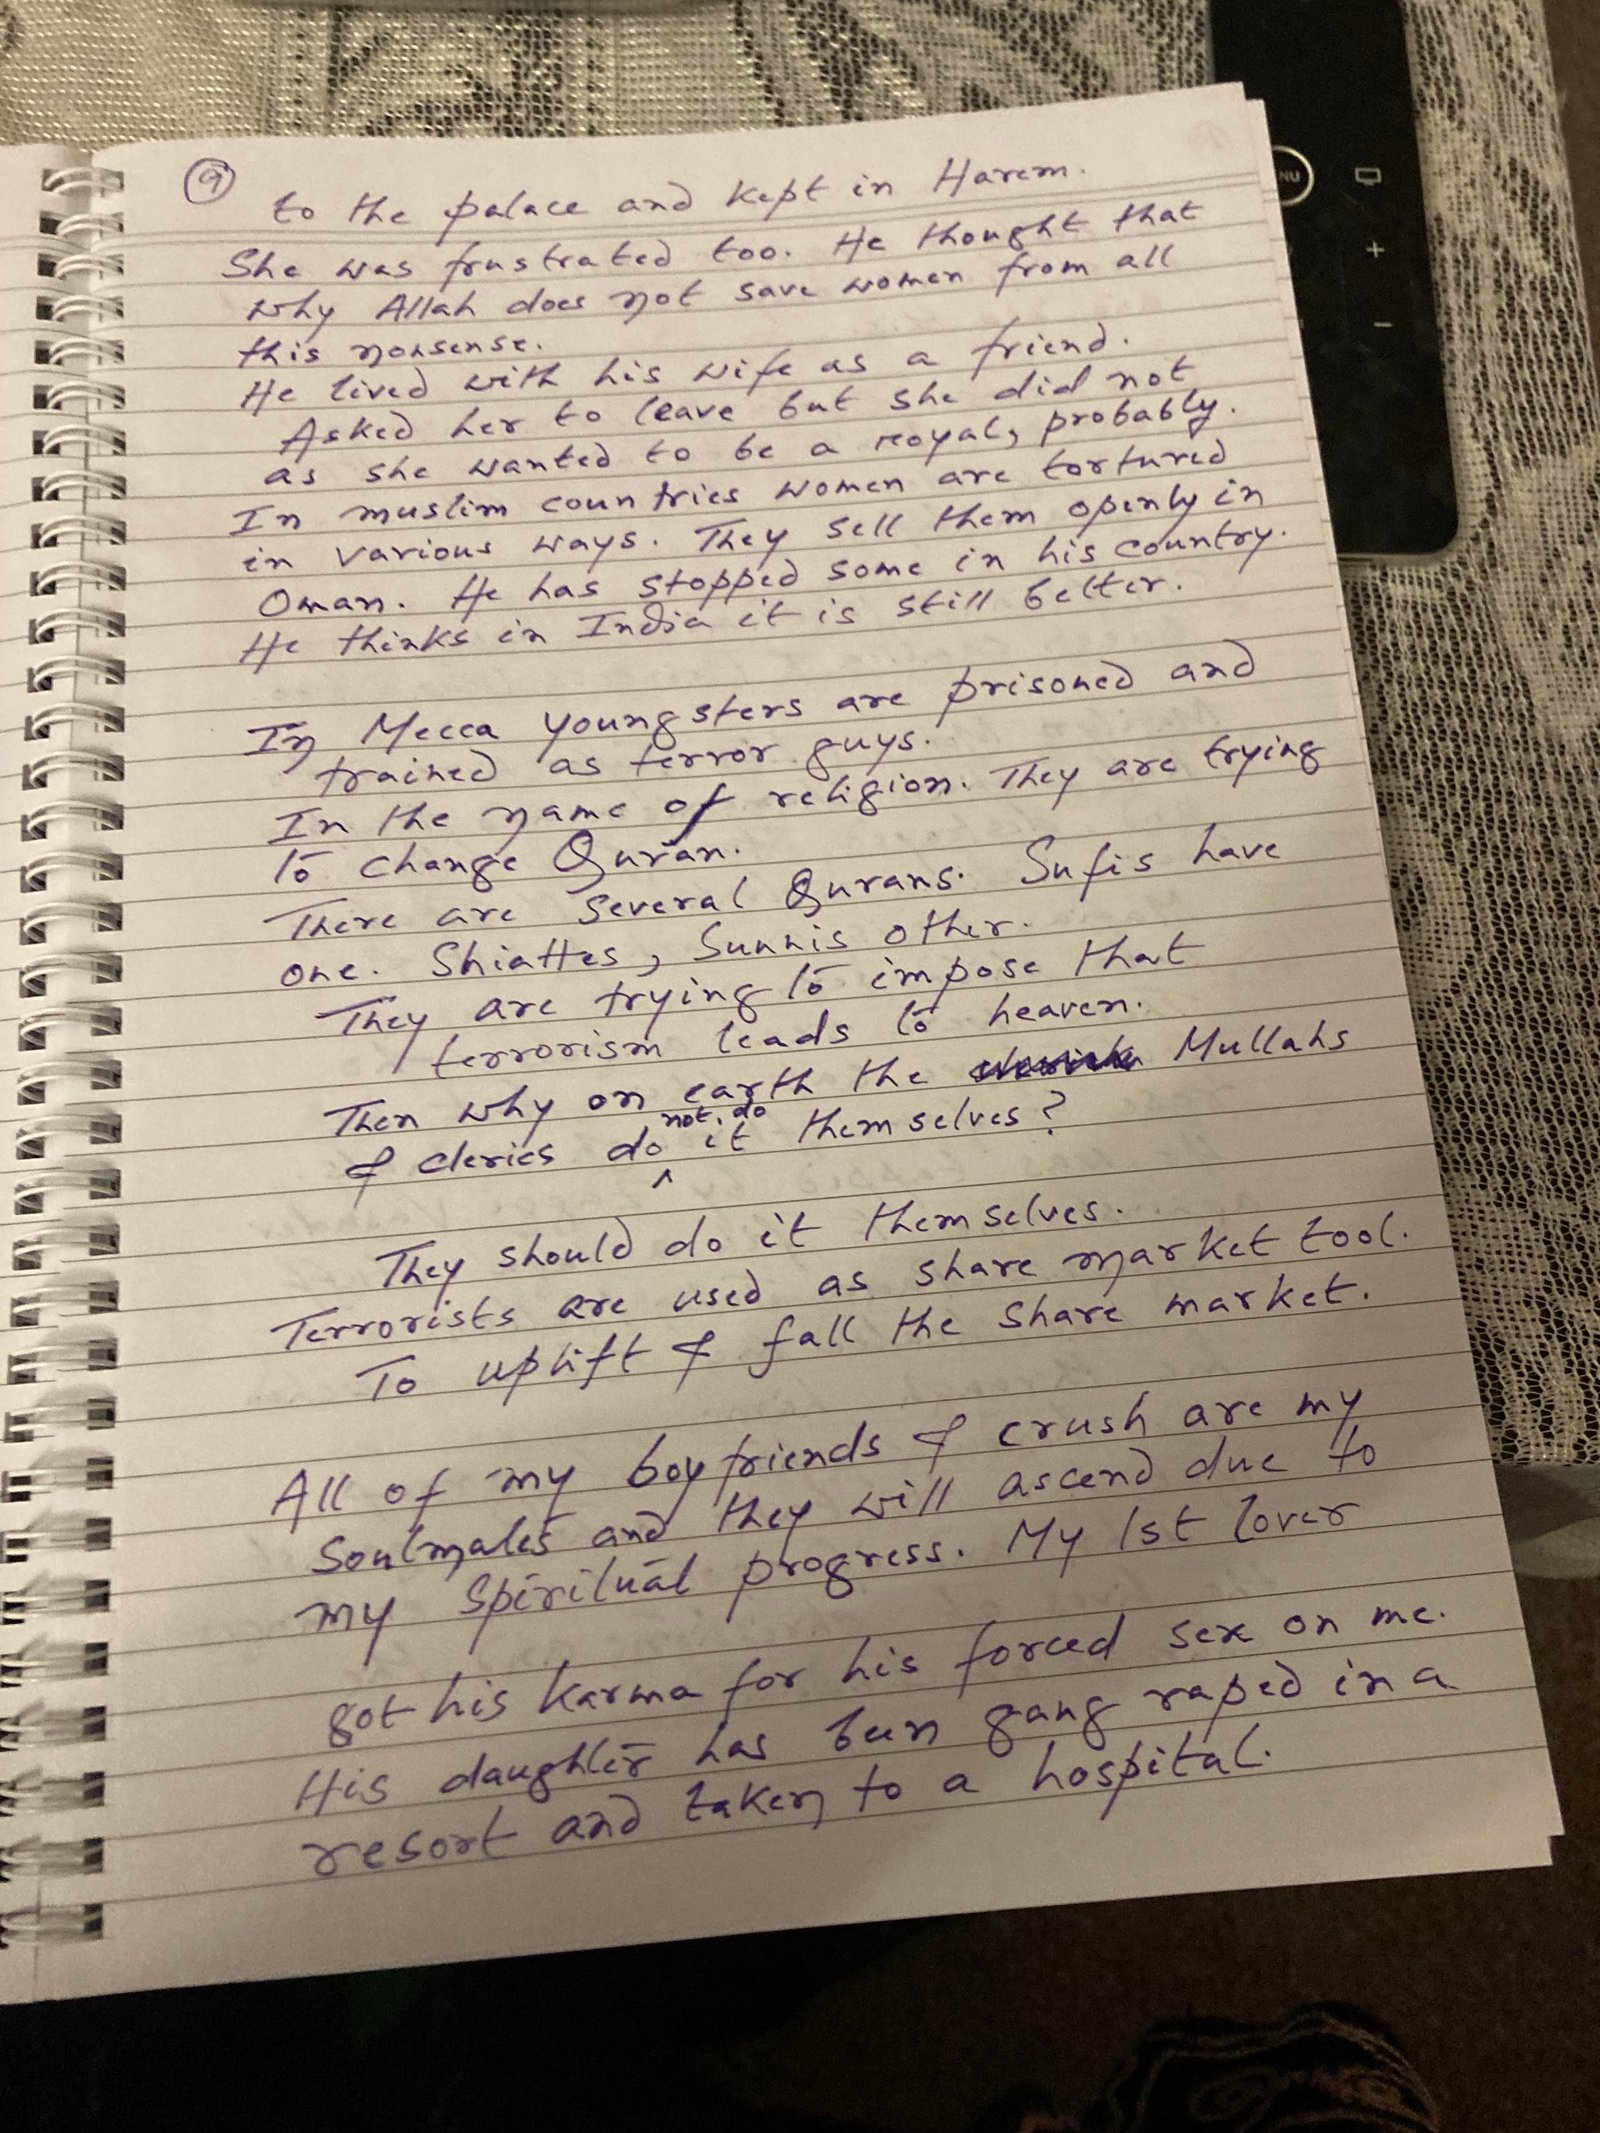 9
to the palace and kept in Harem.
She was frustrated too. He thought that
why Allah does not save women from all
this nonsense.
He lived with his wife as a friend.
Asked her to leave but she did not
as she wanted to be a royal, probably.
In muslim countries women are tortured
in various ways. They sell them openly in
Oman. He has stopped some in his country.
He thinks in India it is still better.
In Mecca youngsters are prisoned and
trained as terror guys.
In the name of religion. They are trying
to change Quran.
There are several Qurans. Sufis have
one. Shiattes, Sunnis other.
They are trying to impose that
terrorism leads to heaven.
Then why on earth the Mullahs
& clerics do not do it themselves?
They should do it themselves.
Terrorists are used as share market tool.
To uplift & fall the share market.
All of my boyfriends & crush are my
soulmates and they will ascend due to
my spiritual progress. My 1st lover
got his karma for his forced sex on me.
His daughter has been gang raped in a
resort and taken to a hospital.
NU
+
-